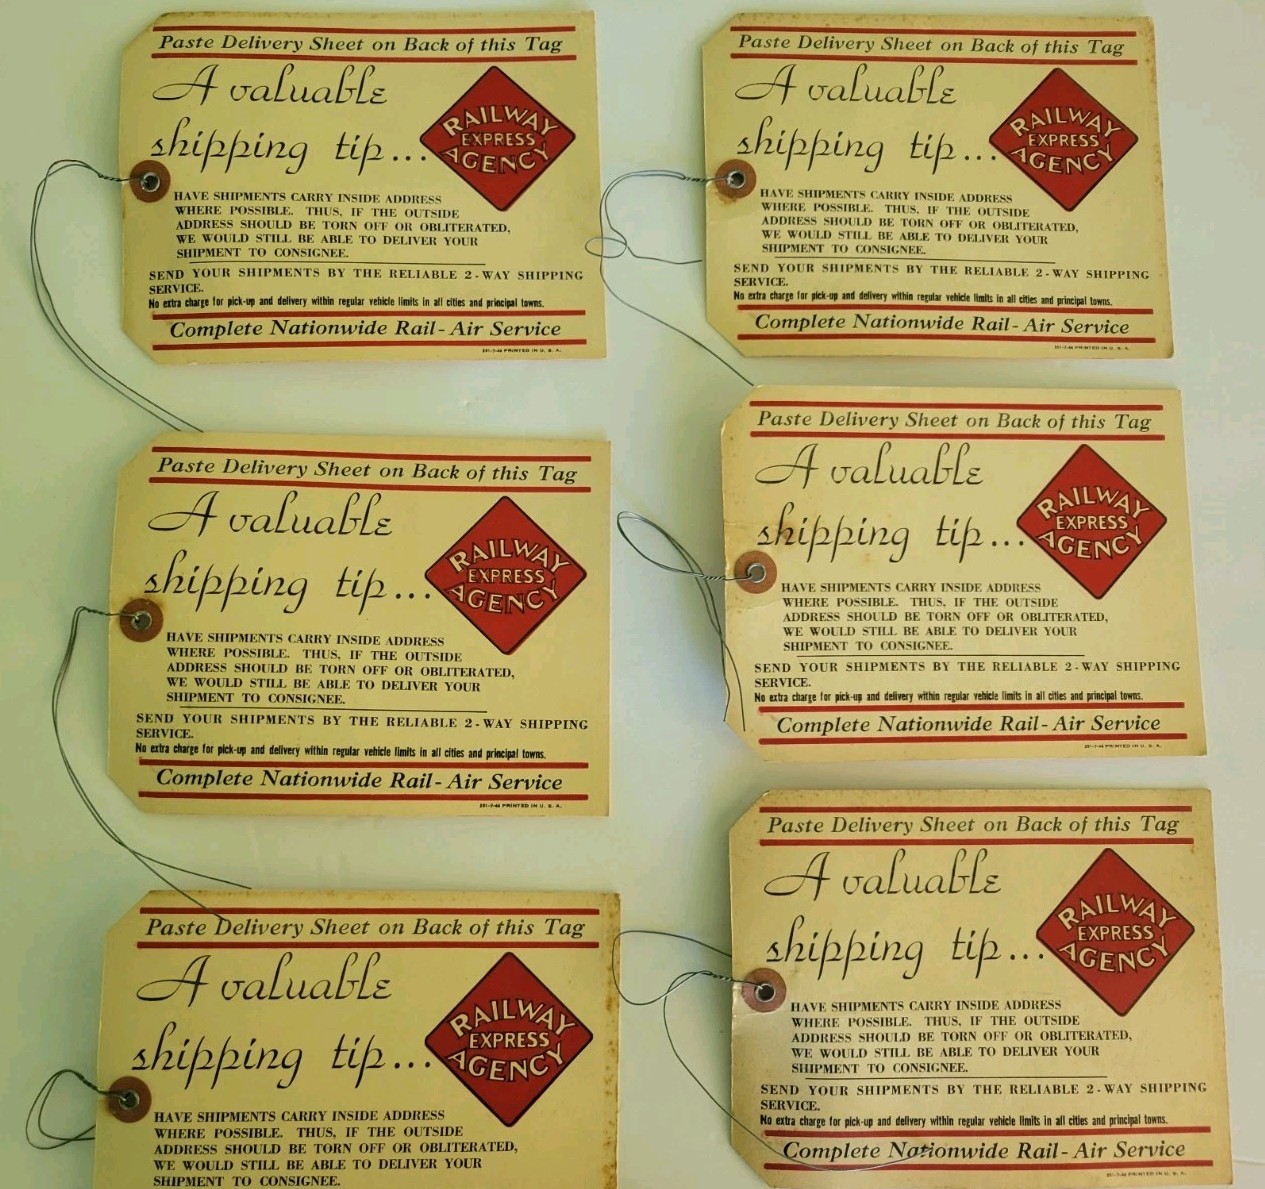 Paste Delivery Sheet on Back of this Tag
A valuable
shipping tip...
RAILWAY
EXPRESS
AGENCY
HAVE SHIPMENTS CARRY INSIDE ADDRESS
WHERE POSSIBLE. THUS, IF THE OUTSIDE
ADDRESS SHOULD BE TORN OFF OR OBLITERATED,
WE WOULD STILL BE ABLE TO DELIVER YOUR
SHIPMENT TO CONSIGNEE.
SEND YOUR SHIPMENTS BY THE RELIABLE 2-WAY SHIPPING
SERVICE.
No extra charge for pick-up and delivery within regular vehicle limits in all cities and principal towns.
Complete Nationwide Rail-Air Service
PRINTED IN U. S. A.
Paste Delivery Sheet on Back of this Tag
A valuable
shipping tip...
RAILWAY
EXPRESS
AGENCY
HAVE SHIPMENTS CARRY INSIDE ADDRESS
WHERE POSSIBLE. THUS, IF THE OUTSIDE
ADDRESS SHOULD BE TORN OFF OR OBLITERATED,
WE WOULD STILL BE ABLE TO DELIVER YOUR
SHIPMENT TO CONSIGNEE.
SEND YOUR SHIPMENTS BY THE RELIABLE 2-WAY SHIPPING
SERVICE.
No extra charge for pick-up and delivery within regular vehicle limits in all cities and principal towns.
Complete Nationwide Rail-Air Service
PRINTED IN U. S. A.
Paste Delivery Sheet on Back of this Tag
A valuable
shipping tip...
RAILWAY
EXPRESS
AGENCY
HAVE SHIPMENTS CARRY INSIDE ADDRESS
WHERE POSSIBLE. THUS, IF THE OUTSIDE
ADDRESS SHOULD BE TORN OFF OR OBLITERATED,
WE WOULD STILL BE ABLE TO DELIVER YOUR
SHIPMENT TO CONSIGNEE.
SEND YOUR SHIPMENTS BY THE RELIABLE 2-WAY SHIPPING
SERVICE.
No extra charge for pick-up and delivery within regular vehicle limits in all cities and principal towns.
Complete Nationwide Rail-Air Service
PRINTED IN U. S. A.
Paste Delivery Sheet on Back of this Tag
A valuable
shipping tip...
RAILWAY
EXPRESS
AGENCY
HAVE SHIPMENTS CARRY INSIDE ADDRESS
WHERE POSSIBLE. THUS, IF THE OUTSIDE
ADDRESS SHOULD BE TORN OFF OR OBLITERATED,
WE WOULD STILL BE ABLE TO DELIVER YOUR
SHIPMENT TO CONSIGNEE.
SEND YOUR SHIPMENTS BY THE RELIABLE 2-WAY SHIPPING
SERVICE.
No extra charge for pick-up and delivery within regular vehicle limits in all cities and principal towns.
Complete Nationwide Rail-Air Service
PRINTED IN U. S. A.
Paste Delivery Sheet on Back of this Tag
A valuable
shipping tip...
RAILWAY
EXPRESS
AGENCY
HAVE SHIPMENTS CARRY INSIDE ADDRESS
WHERE POSSIBLE. THUS, IF THE OUTSIDE
ADDRESS SHOULD BE TORN OFF OR OBLITERATED,
WE WOULD STILL BE ABLE TO DELIVER YOUR
SHIPMENT TO CONSIGNEE.
Paste Delivery Sheet on Back of this Tag
A valuable
shipping tip...
RAILWAY
EXPRESS
AGENCY
HAVE SHIPMENTS CARRY INSIDE ADDRESS
WHERE POSSIBLE. THUS, IF THE OUTSIDE
ADDRESS SHOULD BE TORN OFF OR OBLITERATED,
WE WOULD STILL BE ABLE TO DELIVER YOUR
SHIPMENT TO CONSIGNEE.
SEND YOUR SHIPMENTS BY THE RELIABLE 2-WAY SHIPPING
SERVICE.
No extra charge for pick-up and delivery within regular vehicle limits in all cities and principal towns.
Complete Nationwide Rail-Air Service
PRINTED IN U. S. A.